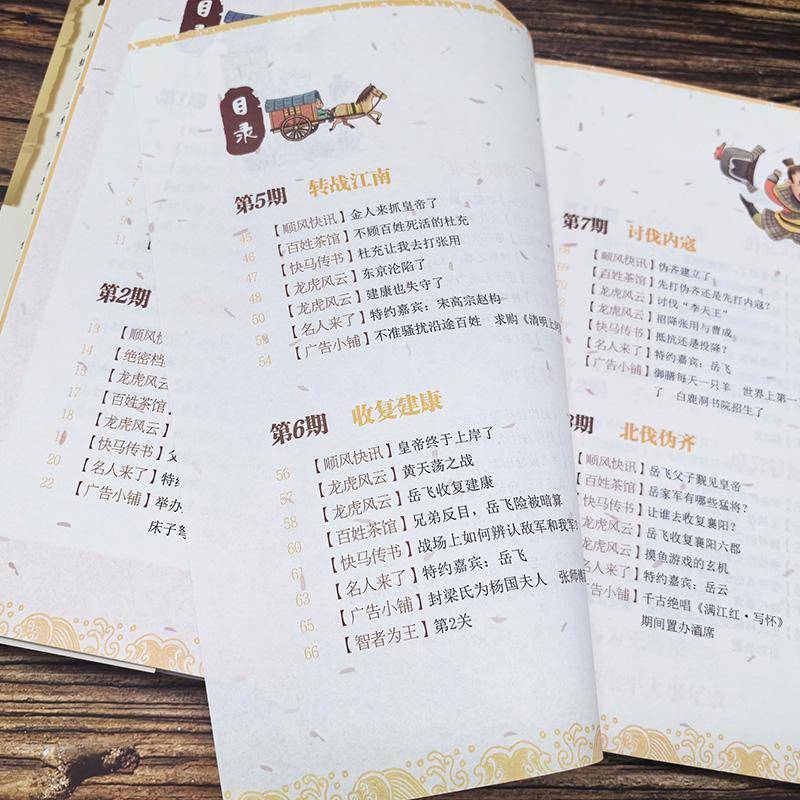 目录
第5期 转战江南
45 【顺风快讯】金人来抓皇帝了
46 【百姓茶馆】不顾百姓死活的杜充
47 【快马传书】杜充让我去打张用
48 【龙虎风云】东京沦陷了
50 【龙虎风云】建康也失守了
【名人来了】特约嘉宾：宋高宗赵构
54 【广告小铺】不准骚扰沿途百姓 求购《清明上河
第6期 收复建康
56 【顺风快讯】皇帝终于上岸了
57 【龙虎风云】黄天荡之战
58 【龙虎风云】岳飞收复建康
60 【百姓茶馆】兄弟反目，岳飞险被暗算
61 【快马传书】战场上如何辨认敌军和我军
63 【名人来了】特约嘉宾：岳飞
65 【广告小铺】封梁氏为杨国夫人 张师
66 【智者为王】第2关
第2期
13 【顺风快讯】
14 【绝密档
【龙虎风云】
【百姓茶馆】
18 【龙虎风云】
【快马传书】
20 【名人来了】特
22 【广告小铺】举办
床子弩
第7期 讨伐内寇
【顺风快讯】伪齐建立了
【百姓茶馆】先打伪齐还是先打内寇？
【龙虎风云】讨伐“李天王”
【龙虎风云】招降张用与曹成
【快马传书】抵抗还是投降？
【名人来了】特约嘉宾：岳飞
【广告小铺】御膳每天一只羊 世界上第一
了 白鹿洞书院招生了
期 北伐伪齐
【顺风快讯】岳飞父子觐见皇帝
【百姓茶馆】岳家军有哪些猛将？
【快马传书】让谁去收复襄阳？
【龙虎风云】岳飞收复襄阳六郡
【龙虎风云】摸鱼游戏的玄机
【名人来了】特约嘉宾：岳云
【广告小铺】千古绝唱《满江红·写怀》
期间置办酒席